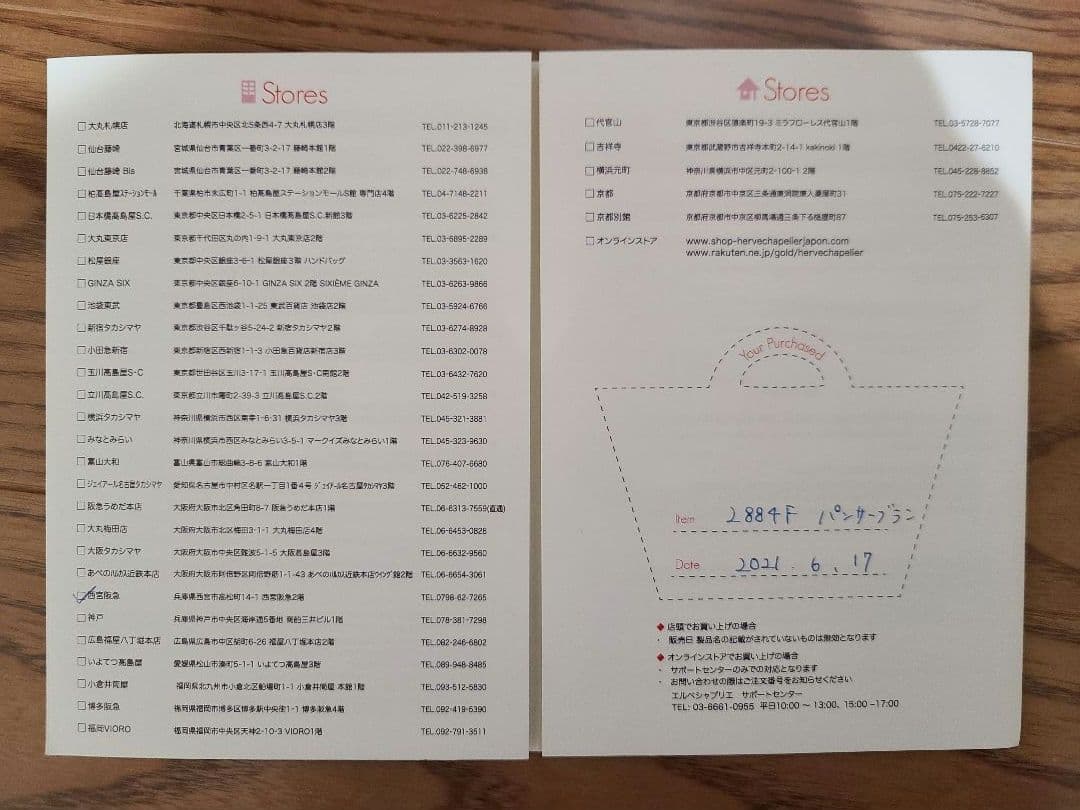 Stores
大丸札幌店 北海道札幌市中央区北5条西4-7 大丸札幌店3階 TEL.011-213-1245
仙台藤崎 宮城県仙台市青葉区一番町3-2-17 藤崎本館1階 TEL.022-398-6977
仙台藤崎 Bis 宮城県仙台市青葉区一番町3-2-17 藤崎本館2階 TEL.022-748-6938
柏髙島屋ステーションモール 千葉県柏市末広町1-1 柏髙島屋ステーションモールS館 専門店4階 TEL.04-7148-2211
日本橋髙島屋S.C. 東京都中央区日本橋2-5-1 日本橋髙島屋S.C.新館3階 TEL.03-6225-2842
大丸東京店 東京都千代田区丸の内1-9-1 大丸東京店2階 TEL.03-6895-2289
松屋銀座 東京都中央区銀座3-6-1 松屋銀座3階 ハンドバッグ TEL.03-3563-1620
GINZA SIX 東京都中央区銀座6-10-1 GINZA SIX 2階 SIXIÈME GINZA TEL.03-6263-9866
池袋東武 東京都豊島区西池袋1-1-25 東武百貨店 池袋店2階 TEL.03-5924-6766
新宿タカシマヤ 東京都渋谷区千駄ヶ谷5-24-2 新宿タカシマヤ2階 TEL.03-6274-8928
小田急新宿 東京都新宿区西新宿1-1-3 小田急百貨店新宿店3階 TEL.03-6302-0078
玉川髙島屋S・C 東京都世田谷区玉川3-17-1 玉川髙島屋S・C南館2階 TEL.03-6432-7620
立川髙島屋S.C. 東京都立川市曙町2-39-3 立川髙島屋S.C.2階 TEL.042-519-3258
横浜タカシマヤ 神奈川県横浜市西区南幸1-6-31 横浜タカシマヤ3階 TEL.045-321-3881
みなとみらい 神奈川県横浜市西区みなとみらい3-5-1 マークイズみなとみらい1階 TEL.045-323-9630
富山大和 富山県富山市総曲輪3-8-6 富山大和1階 TEL.076-407-6680
ジェイアール名古屋タカシマヤ 愛知県名古屋市中村区名駅一丁目1番4号 ジェイアール名古屋タカシマヤ3階 TEL.052-462-1000
阪急うめだ本店 大阪府大阪市北区角田町8-7 阪急うめだ本店1階 TEL.06-6313-7559(直通)
大丸梅田店 大阪府大阪市北区梅田3-1-1 大丸梅田店4階 TEL.06-6453-0828
大阪タカシマヤ 大阪府大阪市中央区難波5-1-5 大阪髙島屋3階 TEL.06-6632-9560
あべのハルカス近鉄本店 大阪府大阪市阿倍野区阿倍野筋1-1-43 あべのハルカス近鉄本店ウイング館2階 TEL.06-6654-3061
西宮阪急 兵庫県西宮市高松町14-1 西宮阪急2階 TEL.0798-62-7265
神戸 兵庫県神戸市中央区海岸通5番地 商船三井ビル1階 TEL.078-381-7298
広島福屋八丁堀本店 広島県広島市中区胡町6-26 福屋八丁堀本店2階 TEL.082-246-6802
いよてつ髙島屋 愛媛県松山市湊町5-1-1 いよてつ髙島屋3階 TEL.089-948-8485
小倉井筒屋 福岡県北九州市小倉北区船場町1-1 小倉井筒屋 本館1階 TEL.093-512-5830
博多阪急 福岡県福岡市博多区博多駅中央街1-1 博多阪急4階 TEL.092-419-5390
福岡VIORO 福岡県福岡市中央区天神2-10-3 VIORO1階 TEL.092-791-3511
Stores
代官山 東京都渋谷区猿楽町19-3 ミラフローレス代官山1階 TEL.03-5728-7077
吉祥寺 東京都武蔵野市吉祥寺本町2-14-1 kakinoki 1階 TEL.0422-27-6210
横浜元町 神奈川県横浜市中区元町2-100-1 2階 TEL.045-228-8852
京都 京都府京都市中京区三条通東洞院東入菱屋町31 TEL.075-222-7227
京都別館 京都府京都市中京区柳馬場通三条下る槌屋町87 TEL.075-253-5307
オンラインストア www.shop-hervechapelierjapon.com
www.rakuten.ne.jp/gold/hervechapelier
Your Purchased
Item 2884F パンサーブラン
Date 2021.6.17
◆ 店頭でお買い上げの場合
・ 販売日 製品名の記載がされていないものは無効となります
◆ オンラインストアでお買い上げの場合
・ サポートセンターのみでの対応となります
・ お問い合わせの際はご注文番号をお知らせください
エルベシャプリエ サポートセンター
TEL: 03-6661-0955 平日10:00 〜 13:00、15:00 -17:00